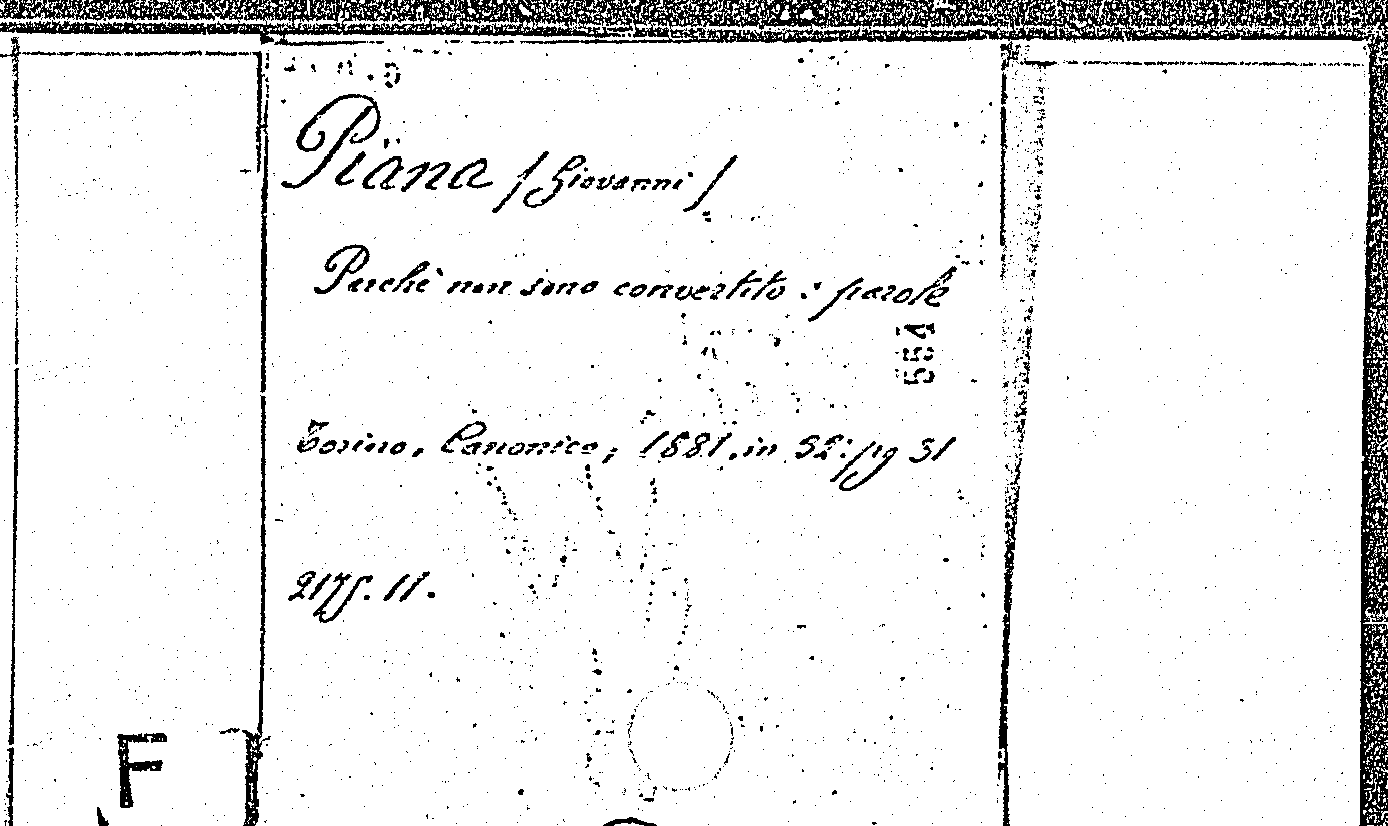 Piana (Giovanni)
Perchè non sono convertito : parole
554
Torino, Canonica, 1881, in 32: pg 31
217f. 11.
F